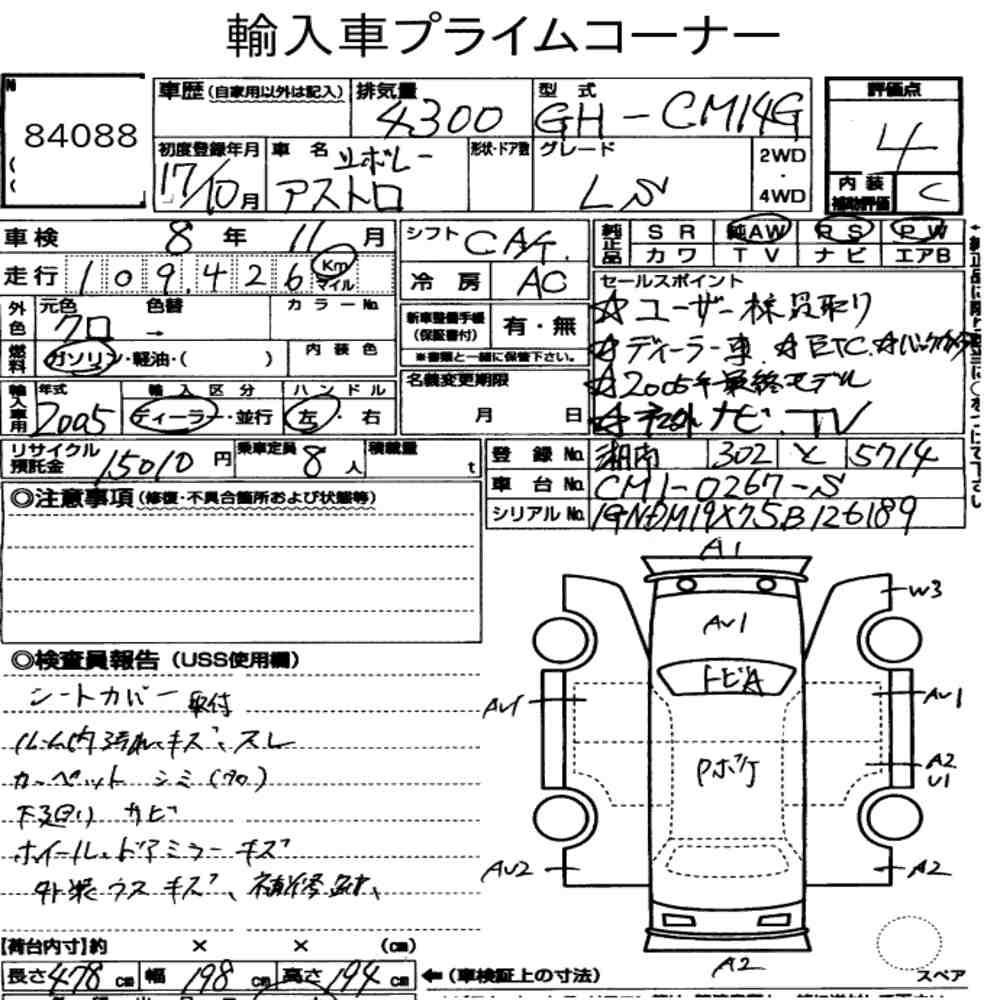 輸入車プライムコーナー
84088
車歴 (自家用以外は記入)
排気量 4300
型式 GH-CM14G
評価点 4
初度登録年月 17/10月
車名 シボレー アストロ
形状・ドア数
グレード LS
2WD・4WD
内装補助評価 C
車検 8年 11月
シフト CAT.
純正品 SR 純AW RS PW
カワ TV ナビ エアB
走行 109,426 Km マイル
冷房 AC
セールスポイント
☆ユーザー様買取り
☆ディーラー車 ☆ETC ☆バックカメラ
☆2005年最終モデル
☆社外ナビ.TV
外色 元色 クロ → 色替
カラーNo.
新車整備手帳(保証書付) 有・無
※書類と一緒に保管下さい。
燃料 ガソリン・軽油・( )
内装色
名義変更期限 月 日
輸入車用 年式 2005
輸入区分 ディーラー・並行
ハンドル 左・右
リサイクル預託金 15010円
乗車定員 8人
積載量 t
登録No. 湘南 302 と 5714
車台No. CM1-0267-S
シリアルNo. 1GNDM19X75B126189
◎注意事項(修復・不具合箇所および状態等)
A1
W3
AU1
トビA
AU1
AU1
A2
U1
Pボケ
AU2
A2
A2
スペア
◎検査員報告(USS使用欄)
シートカバー取付
ルーム内汚れ、キズ、スレ
カーペット シミ(クロ)
下廻り サビ
ホイール、ドアミラー キズ
外装ウスキズ、補修跡、
【荷台内寸】約 × × (cm)
長さ478cm 幅198cm 高さ194cm
←(車検証上の寸法)